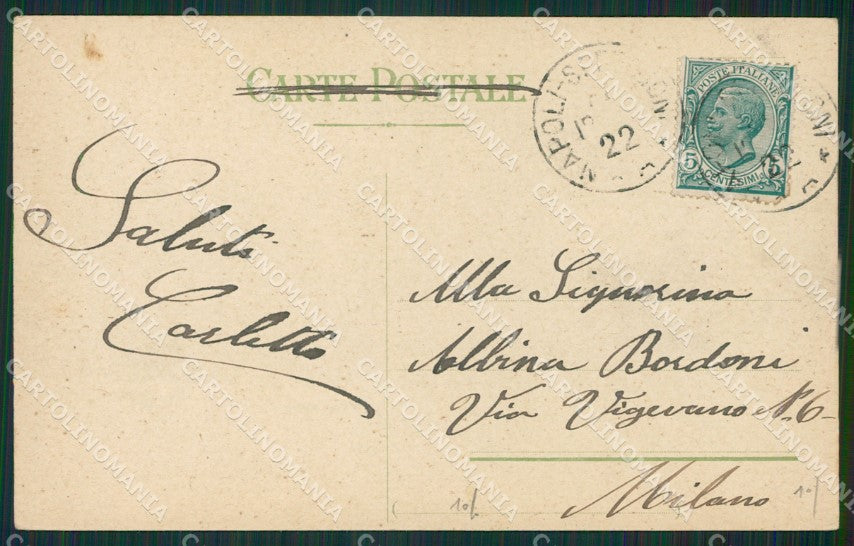 CARTE POSTALE
POSTE ITALIANE
5 CENTESIMI 5
NAPOLI
22
Saluti
Carletto
Alla Signorina
Albina Bordoni
Via Vigevano N. 6-
Milano
10/
10/
CARTOLINOMANIA